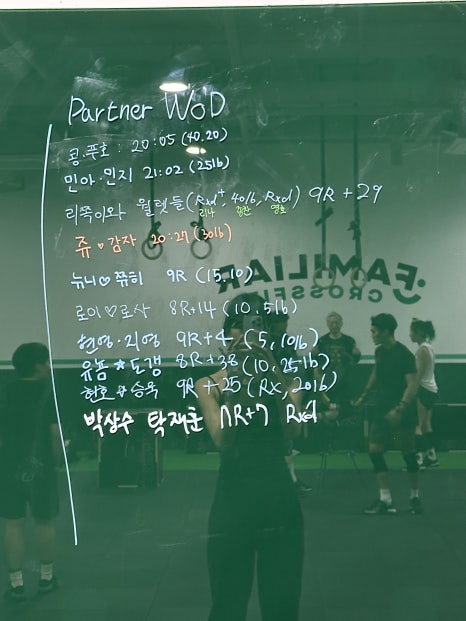 Partner WOD
콩.푸호 : 20:05 (40,20)
민아.민지 21:02 (25lb)
리쪽이와 월렛들(Rxd+, 40lb, Rxd) 9R+29
리나 영호
쥬♡감자 20:27 (30lb)
뉴니♡쮸히 9R (15,10)
로이♡로사 8R+14 (10,5lb)
현영·지영 9R+4 (5,10lb)
유놈★도갱 8R+38 (10,25lb)
현호 승욱 9R+25 (Rx, 20lb)
박상수 탁재훈 R+7 Rxd
FAMILIAR
CROSSFIT